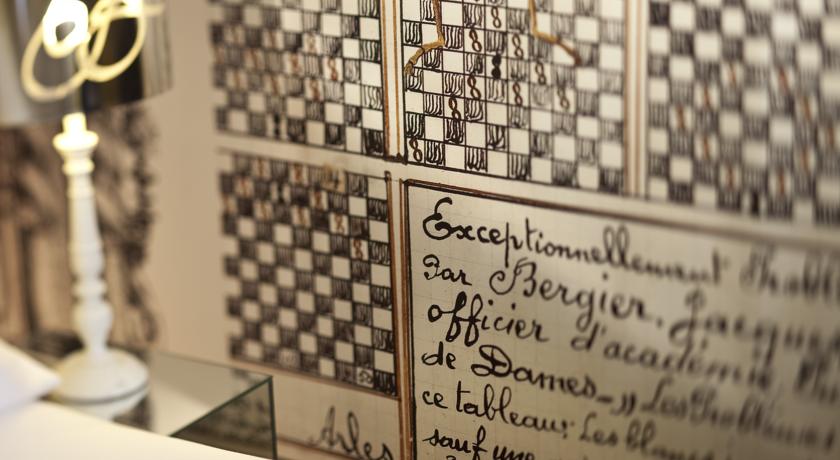 Exceptionnellement
Par Bergier, Jacques
officier d'académie,
de Dames_,, Les Problèmes
ce tableau: Les blancs
sauf une
Arles